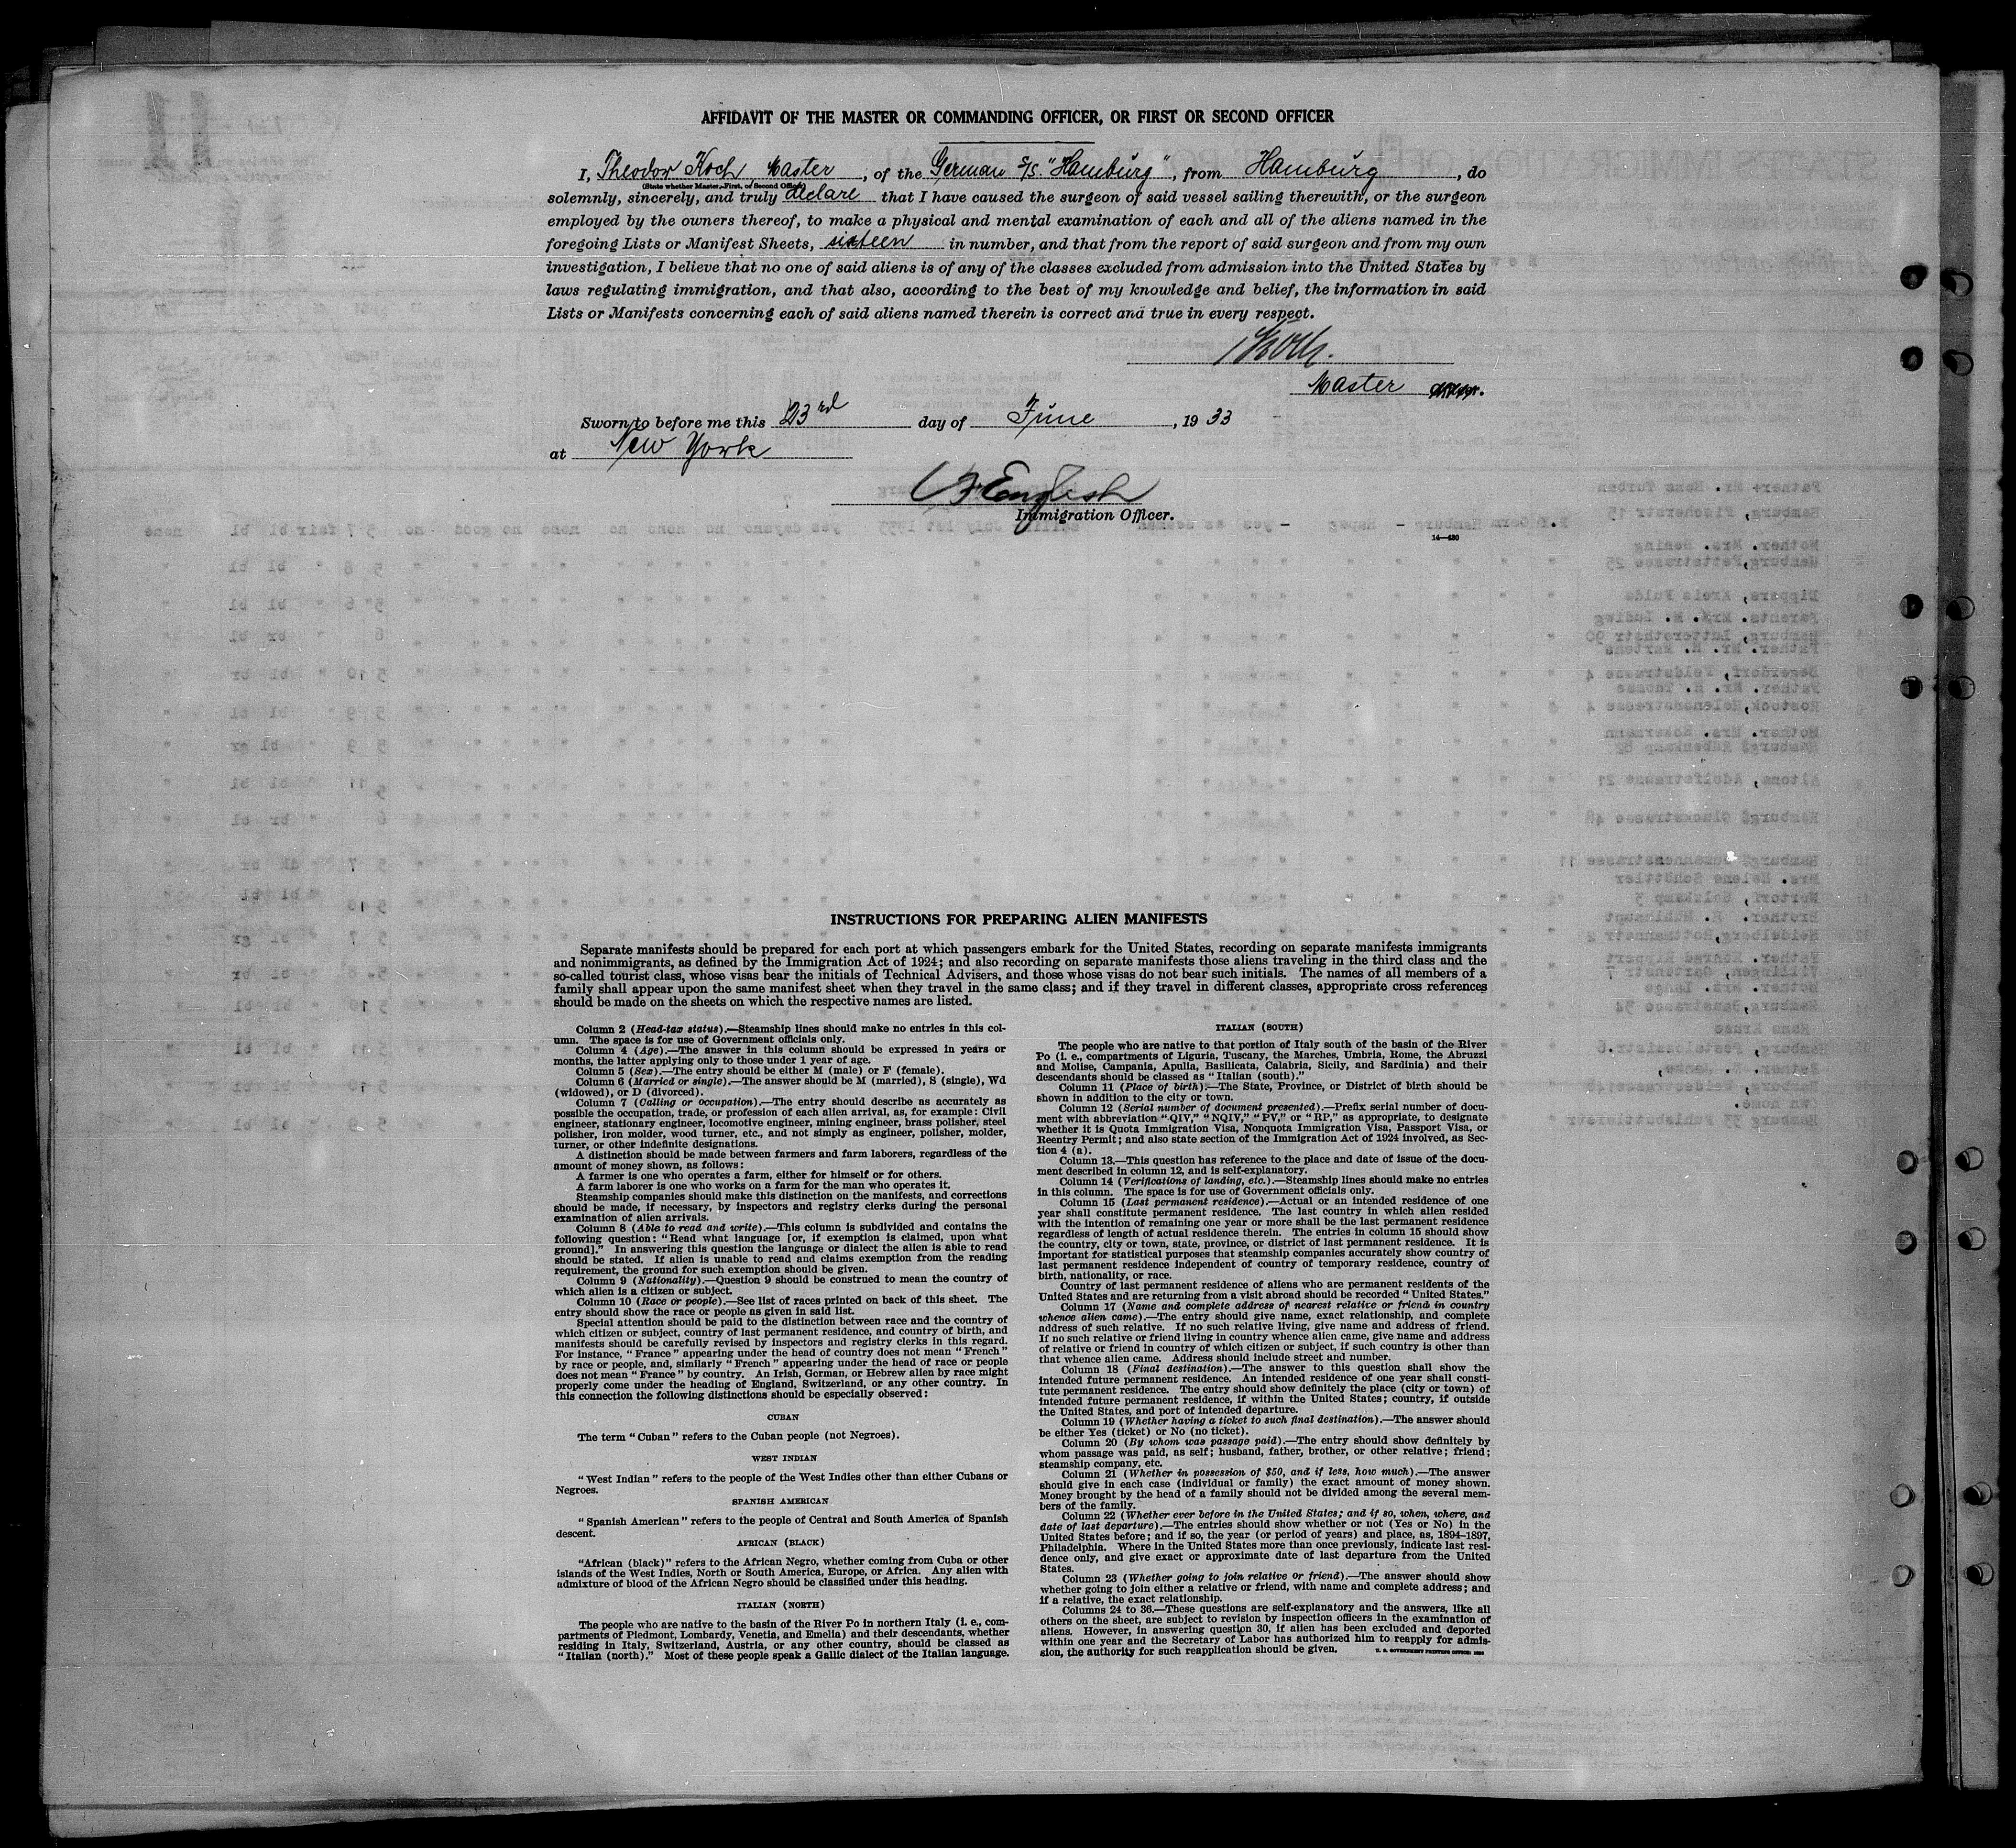 AFFIDAVIT OF THE MASTER OR COMMANDING OFFICER, OR FIRST OR SECOND OFFICER
I, Theodor Koch, Master, of the German S/S. "Hamburg", from Hamburg, do
(State whether Master, First, or Second Officer)
solemnly, sincerely, and truly declare that I have caused the surgeon of said vessel sailing therewith, or the surgeon
employed by the owners thereof, to make a physical and mental examination of each and all of the aliens named in the
foregoing Lists or Manifest Sheets, sixteen in number, and that from the report of said surgeon and from my own
investigation, I believe that no one of said aliens is of any of the classes excluded from admission into the United States by
laws regulating immigration, and that also, according to the best of my knowledge and belief, the information in said
Lists or Manifests concerning each of said aliens named therein is correct and true in every respect.
Koch.
Master
Sworn to before me this 23rd day of June, 1933
at New York
English
Immigration Officer.
14—430
INSTRUCTIONS FOR PREPARING ALIEN MANIFESTS
Separate manifests should be prepared for each port at which passengers embark for the United States, recording on separate manifests immigrants
and nonimmigrants, as defined by the Immigration Act of 1924; and also recording on separate manifests those aliens traveling in the third class and the
so-called tourist class, whose visas bear the initials of Technical Advisers, and those whose visas do not bear such initials. The names of all members of a
family shall appear upon the same manifest sheet when they travel in the same class; and if they travel in different classes, appropriate cross references
should be made on the sheets on which the respective names are listed.
Column 2 (Head-tax status).—Steamship lines should make no entries in this col-
umn. The space is for use of Government officials only.
Column 4 (Age).—The answer in this column should be expressed in years or
months, the latter applying only to those under 1 year of age.
Column 5 (Sex).—The entry should be either M (male) or F (female).
Column 6 (Married or single).—The answer should be M (married), S (single), Wd
(widowed), or D (divorced).
Column 7 (Calling or occupation).—The entry should describe as accurately as
possible the occupation, trade, or profession of each alien arrival, as, for example: Civil
engineer, stationary engineer, locomotive engineer, mining engineer, brass polisher, steel
polisher, iron molder, wood turner, etc., and not simply as engineer, polisher, molder,
turner, or other indefinite designations.
A distinction should be made between farmers and farm laborers, regardless of the
amount of money shown, as follows:
A farmer is one who operates a farm, either for himself or for others.
A farm laborer is one who works on a farm for the man who operates it.
Steamship companies should make this distinction on the manifests, and corrections
should be made, if necessary, by inspectors and registry clerks during the personal
examination of alien arrivals.
Column 8 (Able to read and write).—This column is subdivided and contains the
following question: "Read what language [or, if exemption is claimed, upon what
ground]." In answering this question the language or dialect the alien is able to read
should be stated. If alien is unable to read and claims exemption from the reading
requirement, the ground for such exemption should be given.
Column 9 (Nationality).—Question 9 should be construed to mean the country of
which alien is a citizen or subject.
Column 10 (Race or people).—See list of races printed on back of this sheet. The
entry should show the race or people as given in said list.
Special attention should be paid to the distinction between race and the country of
which citizen or subject, country of last permanent residence, and country of birth, and
manifests should be carefully revised by inspectors and registry clerks in this regard.
For instance, "France" appearing under the head of country does not mean "French"
by race or people, and, similarly "French" appearing under the head of race or people
does not mean "France" by country. An Irish, German, or Hebrew alien by race might
properly come under the heading of England, Switzerland, or any other country. In
this connection the following distinctions should be especially observed:
CUBAN
The term "Cuban" refers to the Cuban people (not Negroes).
WEST INDIAN
"West Indian" refers to the people of the West Indies other than either Cubans or
Negroes.
SPANISH AMERICAN
"Spanish American" refers to the people of Central and South America of Spanish
descent.
AFRICAN (BLACK)
"African (black)" refers to the African Negro, whether coming from Cuba or other
islands of the West Indies, North or South America, Europe, or Africa. Any alien with
admixture of blood of the African Negro should be classified under this heading.
ITALIAN (NORTH)
The people who are native to the basin of the River Po in northern Italy (i. e., com-
partments of Piedmont, Lombardy, Venetia, and Emelia) and their descendants, whether
residing in Italy, Switzerland, Austria, or any other country, should be classed as
"Italian (north)." Most of these people speak a Gallic dialect of the Italian language.
ITALIAN (SOUTH)
The people who are native to that portion of Italy south of the basin of the River
Po (i. e., compartments of Liguria, Tuscany, the Marches, Umbria, Rome, the Abruzzi
and Molise, Campania, Apulia, Basilicata, Calabria, Sicily, and Sardinia) and their
descendants should be classed as "Italian (south)."
Column 11 (Place of birth).—The State, Province, or District of birth should be
shown in addition to the city or town.
Column 12 (Serial number of document presented).—Prefix serial number of docu-
ment with abbreviation "QIV," "NQIV," "PV," or "RP," as appropriate, to designate
whether it is Quota Immigration Visa, Nonquota Immigration Visa, Passport Visa, or
Reentry Permit; and also state section of the Immigration Act of 1924 involved, as Sec-
tion 4 (a).
Column 13.—This question has reference to the place and date of issue of the docu-
ment described in column 12, and is self-explanatory.
Column 14 (Verifications of landing, etc.).—Steamship lines should make no entries
in this column. The space is for use of Government officials only.
Column 15 (Last permanent residence).—Actual or an intended residence of one
year shall constitute permanent residence. The last country in which alien resided
with the intention of remaining one year or more shall be the last permanent residence
regardless of length of actual residence therein. The entries in column 15 should show
the country, city or town, state, province, or district of last permanent residence. It is
important for statistical purposes that steamship companies accurately show country of
last permanent residence independent of country of temporary residence, country of
birth, nationality, or race.
Country of last permanent residence of aliens who are permanent residents of the
United States and are returning from a visit abroad should be recorded "United States."
Column 17 (Name and complete address of nearest relative or friend in country
whence alien came).—The entry should give name, exact relationship, and complete
address of such relative. If no such relative living, give name and address of friend.
If no such relative or friend living in country whence alien came, give name and address
of relative or friend in country of which citizen or subject, if such country is other than
that whence alien came. Address should include street and number.
Column 18 (Final destination).—The answer to this question shall show the
intended future permanent residence. An intended residence of one year shall consti-
tute permanent residence. The entry should show definitely the place (city or town) of
intended future permanent residence, if within the United States; country, if outside
the United States, and port of intended departure.
Column 19 (Whether having a ticket to such final destination).—The answer should
be either Yes (ticket) or No (no ticket).
Column 20 (By whom was passage paid).—The entry should show definitely by
whom passage was paid, as self; husband, father, brother, or other relative; friend;
steamship company, etc.
Column 21 (Whether in possession of $50, and if less, how much).—The answer
should give in each case (individual or family) the exact amount of money shown.
Money brought by the head of a family should not be divided among the several mem-
bers of the family.
Column 22 (Whether ever before in the United States; and if so, when, where, and
date of last departure).—The entries should show whether or not (Yes or No) in the
United States before; and if so, the year (or period of years) and place, as, 1894–1897,
Philadelphia. Where in the United States more than once previously, indicate last resi-
dence only, and give exact or approximate date of last departure from the United
States.
Column 23 (Whether going to join relative or friend).—The answer should show
whether going to join either a relative or friend, with name and complete address; and
if a relative, the exact relationship.
Columns 24 to 36.—These questions are self-explanatory and the answers, like all
others on the sheet, are subject to revision by inspection officers in the examination of
aliens. However, in answering question 30, if alien has been excluded and deported
within one year and the Secretary of Labor has authorized him to reapply for admis-
sion, the authority for such reapplication should be given.
U. S. GOVERNMENT PRINTING OFFICE